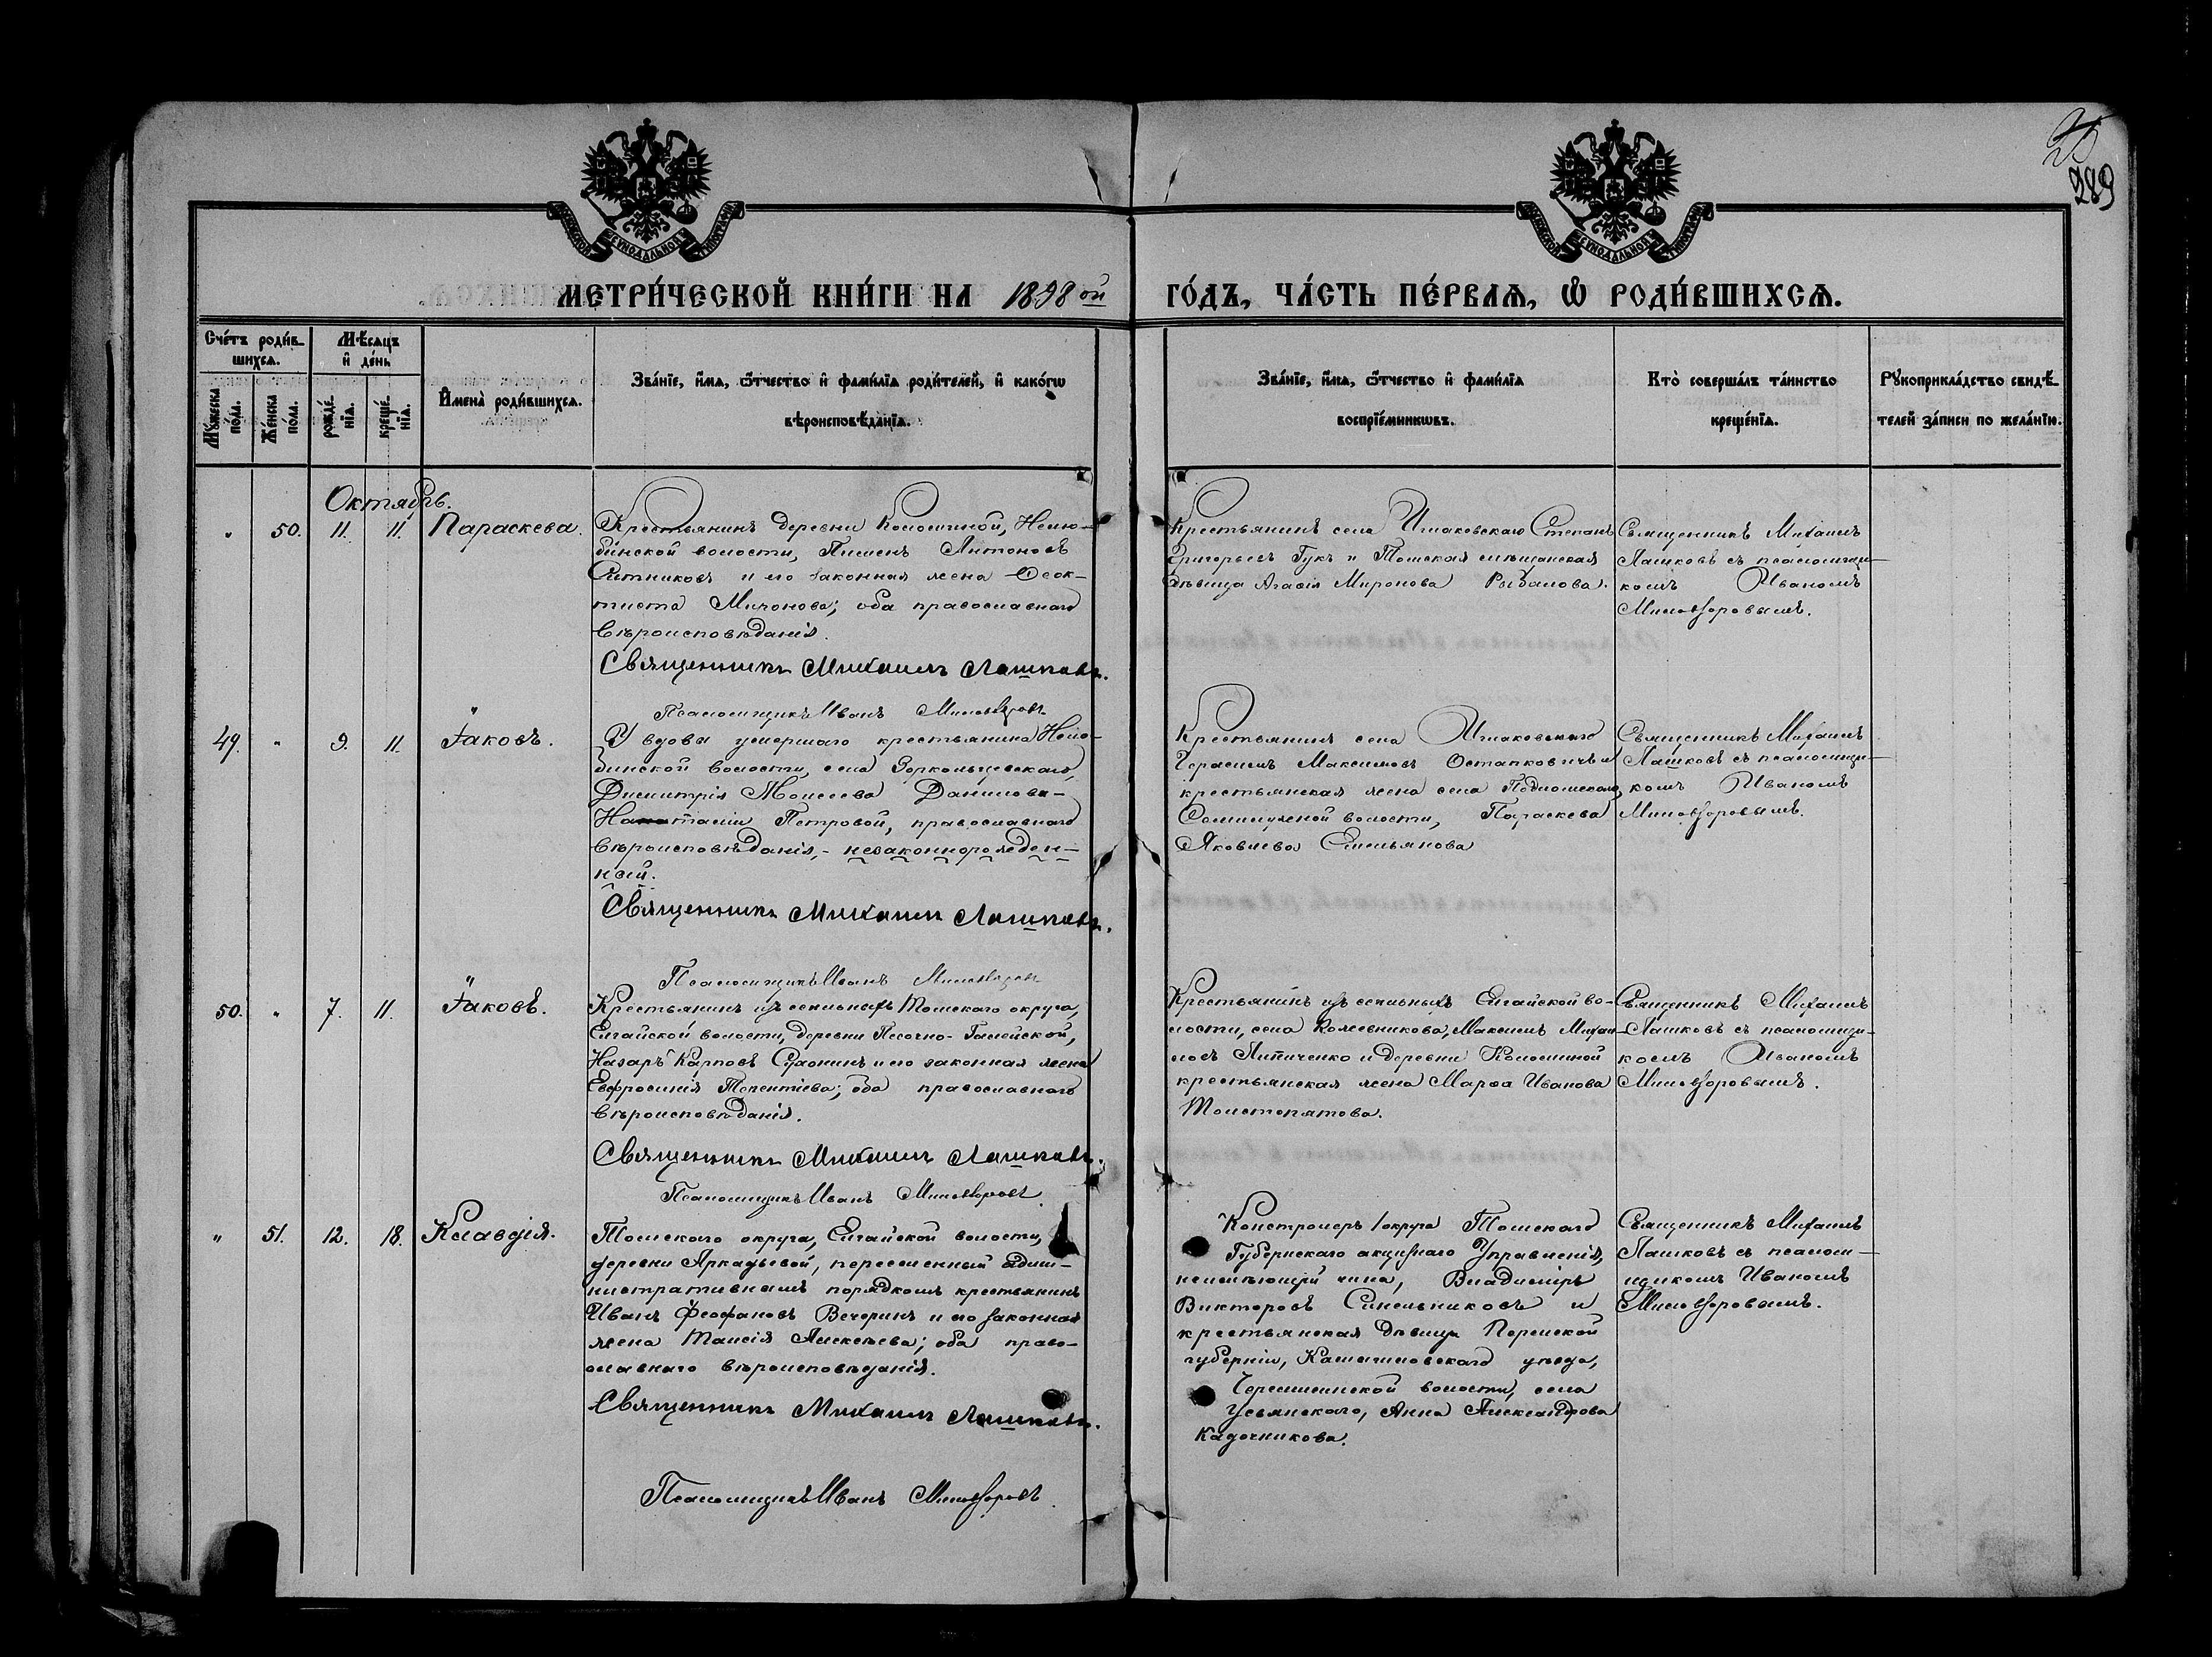 289
МЕТРИ́ЧЕСКОЙ КНИ́ГИ НА 1898 ой ГО́ДЪ, ЧА́СТЬ ПЕ́РВАЯ, Ѽ РОДИ́ВШИХСѦ.
Сче́тъ роди́в-
шихсѧ.
Мѣ́сѧцъ
и҆ де́нь
Мꙋ́жеска по́ла.
Же́нска по́ла.
рожде́нїѧ.
креще́нїѧ.
И҆мена̀ роди́вшихсѧ.
Зва́нїе, и҆́мѧ, ѻ҆́тчество и҆ фами́лїѧ роди́телей, и҆ како́гѡ
вѣроисповѣ́данїѧ.
Зва́нїе, и҆́мѧ, ѻ҆́тчество и҆ фами́лїѧ
воспрїе́мникѡвъ.
Кто̀ соверша́лъ та́инство
креще́нїѧ.
Рꙋкоприкла́дство свидѣ́-
телей за́писи по жела́нїю.
Октябрь.
" 50. 11. 11. Параскева.
Крестьянинъ деревни Коломиной, Нелю-
бинской волости, Пименъ Антоновъ
Ситниковъ и его законная жена Ѳеок-
тиста Миронова; оба православнаго
вѣроисповѣданія.
Священникъ Михаилъ Лашковъ.
Псаломщикъ Иванъ Миловзоровъ
Крестьянинъ села Степанъ
Григорьевъ Гукъ и Томская мѣщанская
дѣвица Агафія Миронова Рыбалова.
Священникъ Михаилъ
Лашковъ съ псаломщи-
комъ Иваномъ
Миловзоровымъ.
49. " 9. 11. Іаковъ.
У вдовы умершаго крестьянина Нелю-
бинской волости, села
Димитрія Моисеева Данилова-
Петровой, православнаго
вѣроисповѣданія,- незаконнорожден-
ный.
Священникъ Михаилъ Лашковъ.
Псаломщикъ Иванъ Миловзоровъ
Крестьянинъ села
Герасимъ Максимовъ Остапковичъ и
крестьянская жена села
волости, Параскева
Яковлева Емельянова
Священникъ Михаилъ
Лашковъ съ псаломщи-
комъ Иваномъ
Миловзоровымъ.
50. " 7. 11. Іаковъ.
Крестьянинъ изъ ссыльныхъ Томскаго округа,
Елгайской волости, деревни Песочно-
Назаръ Карповъ и его законная жена
Евфросинія Терентіева; оба православнаго
вѣроисповѣданія.
Священникъ Михаилъ Лашковъ.
Псаломщикъ Иванъ Миловзоровъ
Крестьянинъ изъ ссыльныхъ Елгайской во-
лости, села Кожевникова, Максимъ Михаи-
ловъ Липиченко и деревни Коломиной
крестьянская жена Марѳа Иванова
Толстопятова.
Священникъ Михаилъ
Лашковъ съ псаломщи-
комъ Иваномъ
Миловзоровымъ.
" 51. 12. 18. Клавдія.
Томскаго округа, Елгайской волости,
деревни Аркадьевой, пересыленный адми-
нистративнымъ порядкомъ крестьянинъ
Иванъ Феофановъ Вечеринъ и его законная
жена Таисія Алексѣева; оба право-
славнаго вѣроисповѣданія.
Священникъ Михаилъ Лашковъ.
Псаломщикъ Иванъ Миловзоровъ
Контролеръ 1 округа Томскаго
Губернскаго акцизнаго Управленія,
неимѣющій чина, Владиміръ
Викторовъ Синельниковъ и
крестьянская дѣвица Пермской
губерніи, Камышловскаго уѣзда,
волости, села
Анна Александрова
Кадочникова.
Священникъ Михаилъ
Лашковъ съ псалом-
щикомъ Иваномъ
Миловзоровымъ.